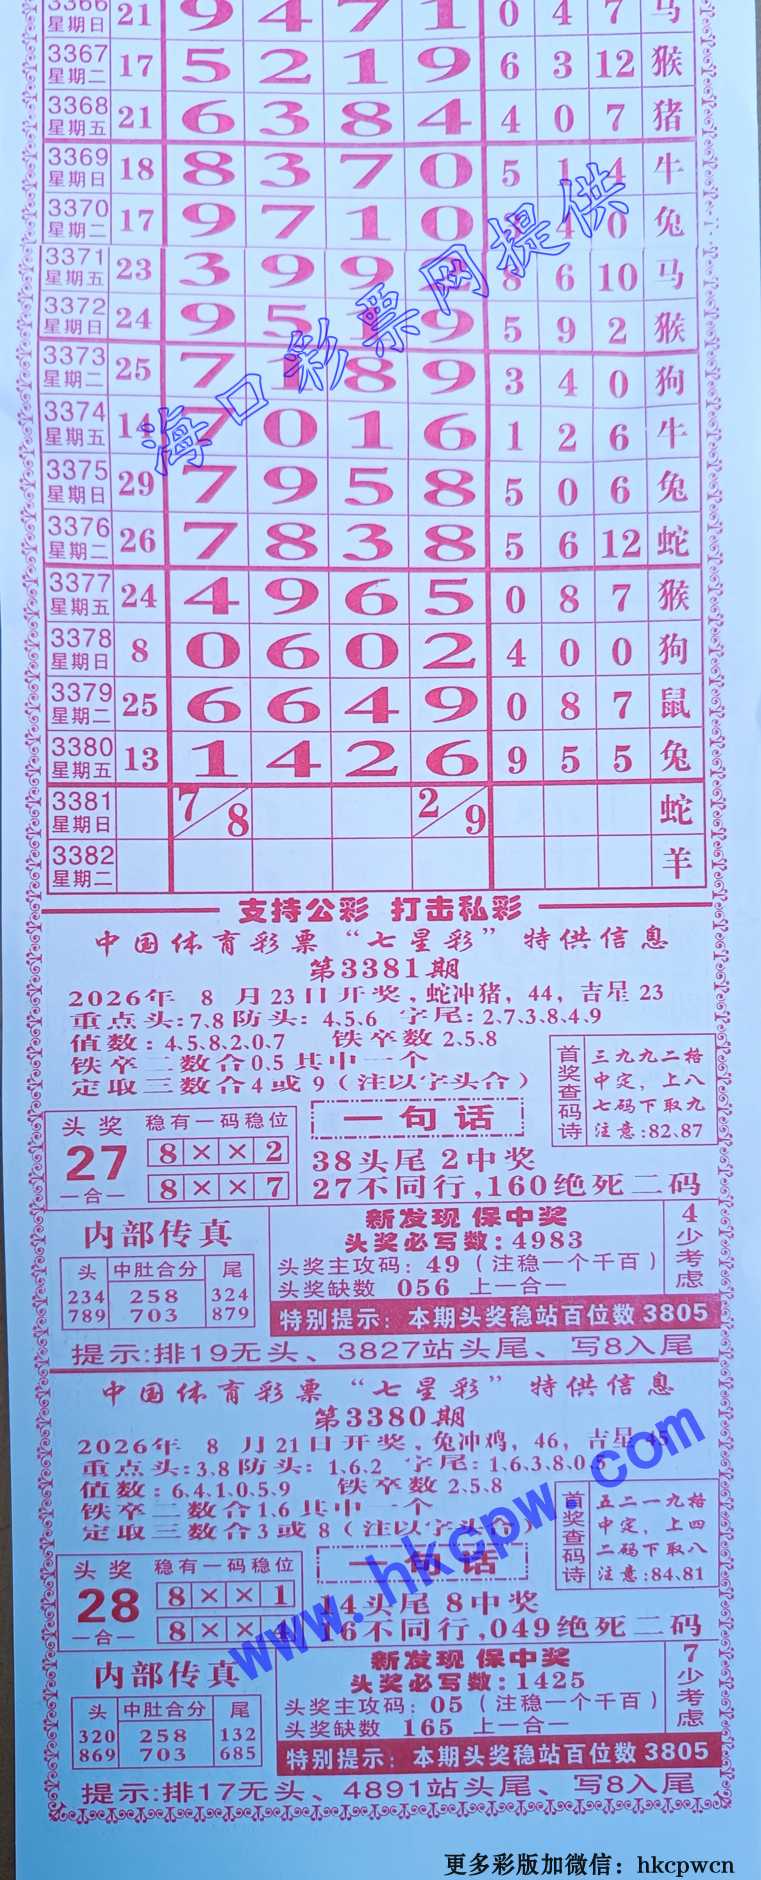 3366 星期日 21 9 4 7 1 0 4 7 马
3367 星期二 17 5 2 1 9 6 3 12 猴
3368 星期五 21 6 3 8 4 4 0 7 猪
3369 星期日 18 8 3 7 0 5 1 4 牛
3370 星期二 17 9 7 1 0 4 0 兔
3371 星期五 23 3 9 9 2 8 6 10 马
3372 星期日 24 9 5 1 9 5 9 2 猴
3373 星期二 25 7 1 8 9 3 4 0 狗
3374 星期五 14 7 0 1 6 1 2 6 牛
3375 星期日 29 7 9 5 8 5 0 6 兔
3376 星期二 26 7 8 3 8 5 6 12 蛇
3377 星期五 24 4 9 6 5 0 8 7 猴
3378 星期日 8 0 6 0 2 4 0 0 狗
3379 星期二 25 6 6 4 9 0 8 7 鼠
3380 星期五 13 1 4 2 6 9 5 5 兔
3381 星期日 7/8 2/9 蛇
3382 星期二 羊
海口彩票网提供
支持公彩 打击私彩
中国体育彩票“七星彩”特供信息
第3381期
2026年 8 月23日开奖,蛇冲猪,44,吉星23
重点头:7.8防头:4.5.6 字尾:2.7.3.8.4.9
值数:4.5.8.2.0.7 铁卒数2.5.8
铁卒二数合0.5其中一个
定取三数合4或9(注以字头合)
首奖查码诗
三九九二格
中定,上八
七码下取九
注意:82.87
头奖 稳有一码稳位
27 8 × × 2
一合一 8 × × 7
一句话
38头尾2中奖
27不同行,160绝死二码
内部传真
头 中肚合分 尾
234 258 324
789 703 879
新发现 保中奖
头奖必写数:4983
头奖主攻码:49(注稳一个千百)
头奖缺数 056 上一合一
4少考虑
特别提示:本期头奖稳站百位数3805
提示:排19无头、3827站头尾、写8入尾
中国体育彩票“七星彩”特供信息
第3380期
2026年 8 月21日开奖,兔冲鸡,46,吉星45
重点头:3.8防头:1.6.2 字尾:1.6.3.8.0.5
值数:6.4.1.0.5.9 铁卒数2.5.8
铁卒二数合1.6其中一个
定取三数合3或8(注以字头合)
首奖查码诗
五二一九格
中定,上四
二码下取八
注意:84.81
头奖 稳有一码稳位
28 8 × × 1
一合一 8 × ×
一句话
14头尾8中奖
16不同行,049绝死二码
www.hkcpw.com
内部传真
头 中肚合分 尾
320 258 132
869 703 685
新发现 保中奖
头奖必写数:1425
头奖主攻码:05(注稳一个千百)
头奖缺数 165 上一合一
7少考虑
特别提示:本期头奖稳站百位数3805
提示:排17无头、4891站头尾、写8入尾
更多彩版加微信:hkcpwcn